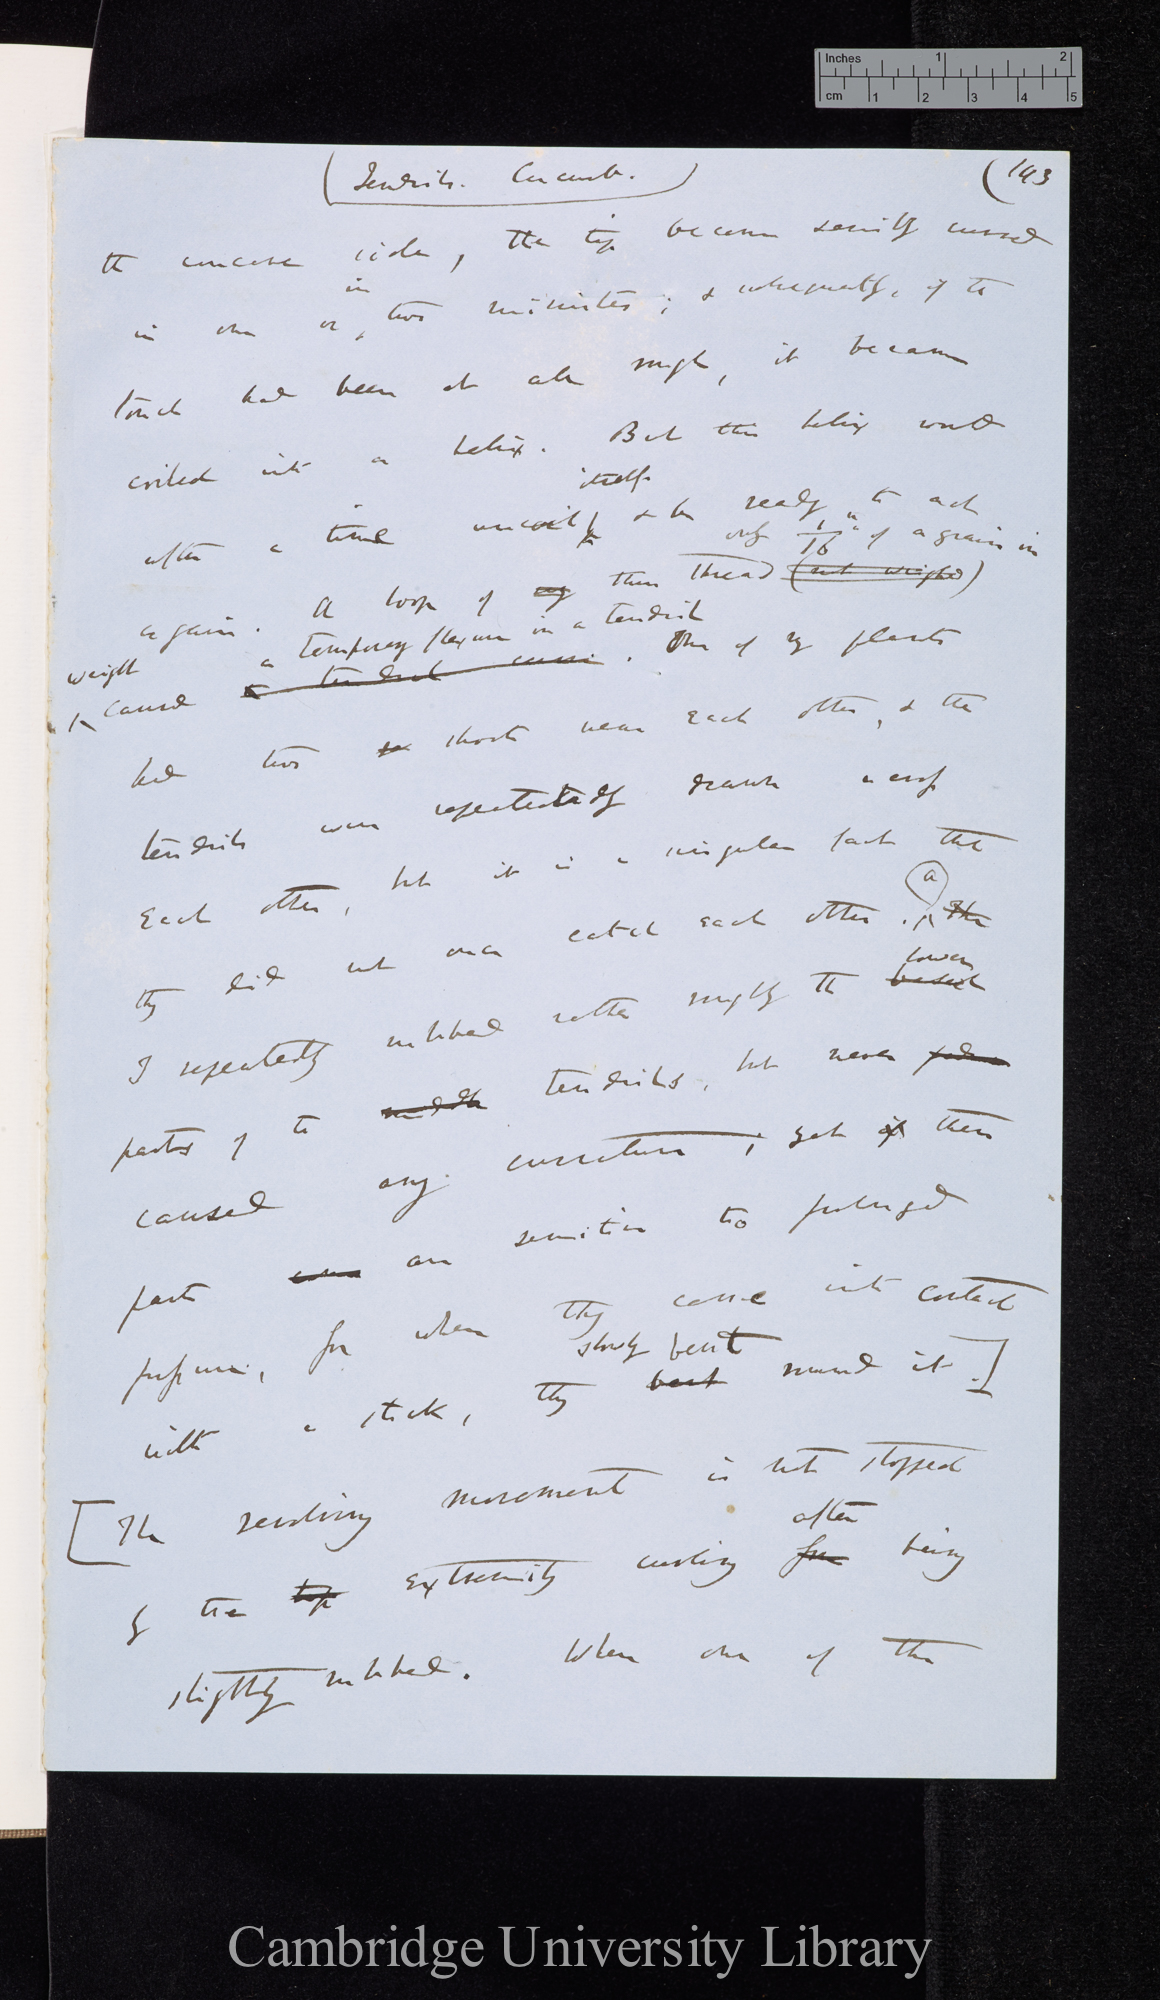 Inches 1 2
cm 1 2 3 4 5
(Tendrils. Cucurb.)
(143
the concave side, the tip became sensibly curved
in
in one or, two minutes; & subsequently, if the
touch had been at all rough, it became
coiled into a helix. But this helix would
itself
after a time uncoil & be ready to act
only 1/16 of a grain in
again. A loop of thin thread (not weight)
weight a temporary flexure in a tendril
caused a tendril . One of my plants
had two shoots near each other, & the
tendrils were repeatedly drawn across
each other, but it is a singular fact that
(a)
they did not once catch each other. The
lower
I repeatedly rubbed rather roughly the basal
parts of the middle tendrils, but never
caused any curvature; yet if these
parts are sensitive to prolonged
pressure, for when they came into contact
slowly bent
with a stick, they bent round it.]
[The revolving movement is not stopped
after
by the top extremity curling from being
slightly rubbed. When one of the
Cambridge University Library